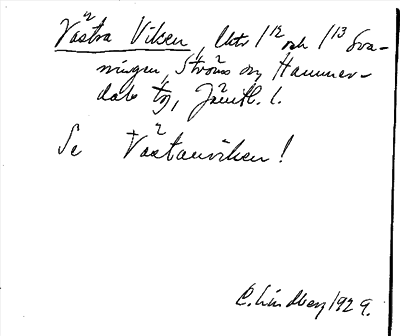 Västra Viken, Utr 1/12 och 1/13 Sva-
ningen, Ströms och Hammer-
dals tg, Jämtl. l.
Se Västanviken!
C. Lindberg 1929.